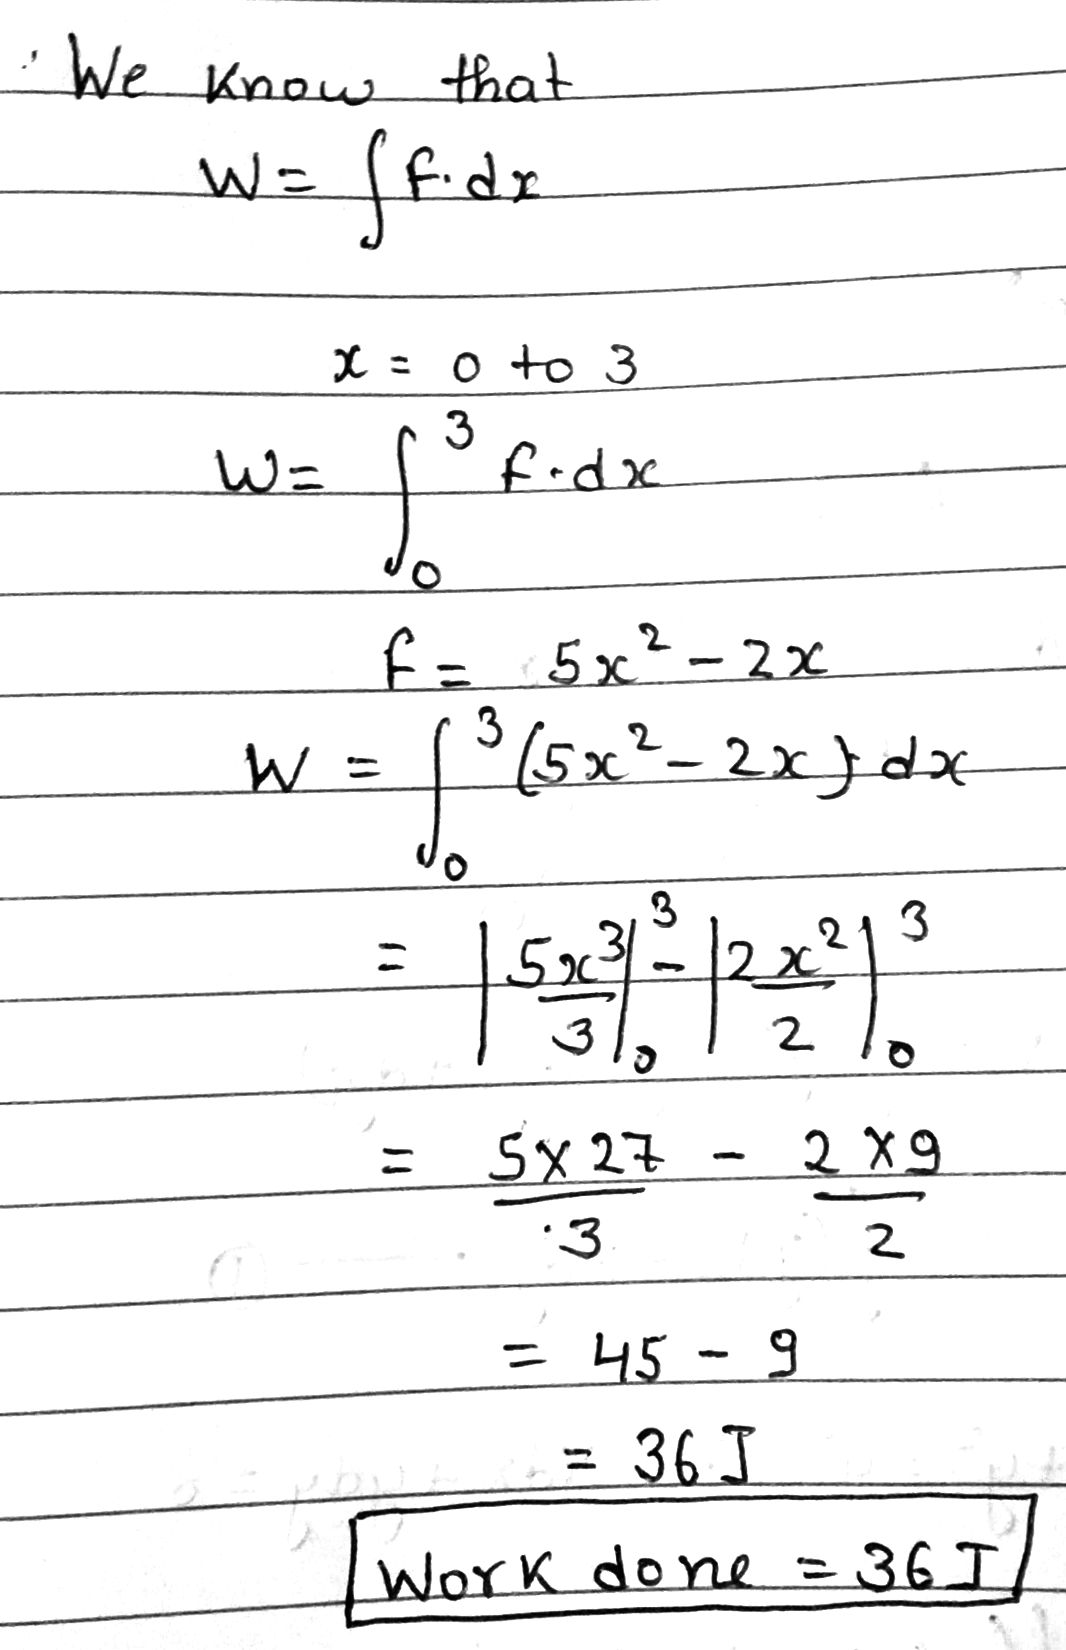 We know that
W = ∫ f·dx
x = 0 to 3
W = ∫₀³ f·dx
f = 5x² − 2x
W = ∫₀³ (5x² − 2x) dx
= |5x³/3|₀³ − |2x²/2|₀³
= 5×27/3 − 2×9/2
= 45 − 9
= 36 J
Work done = 36 J